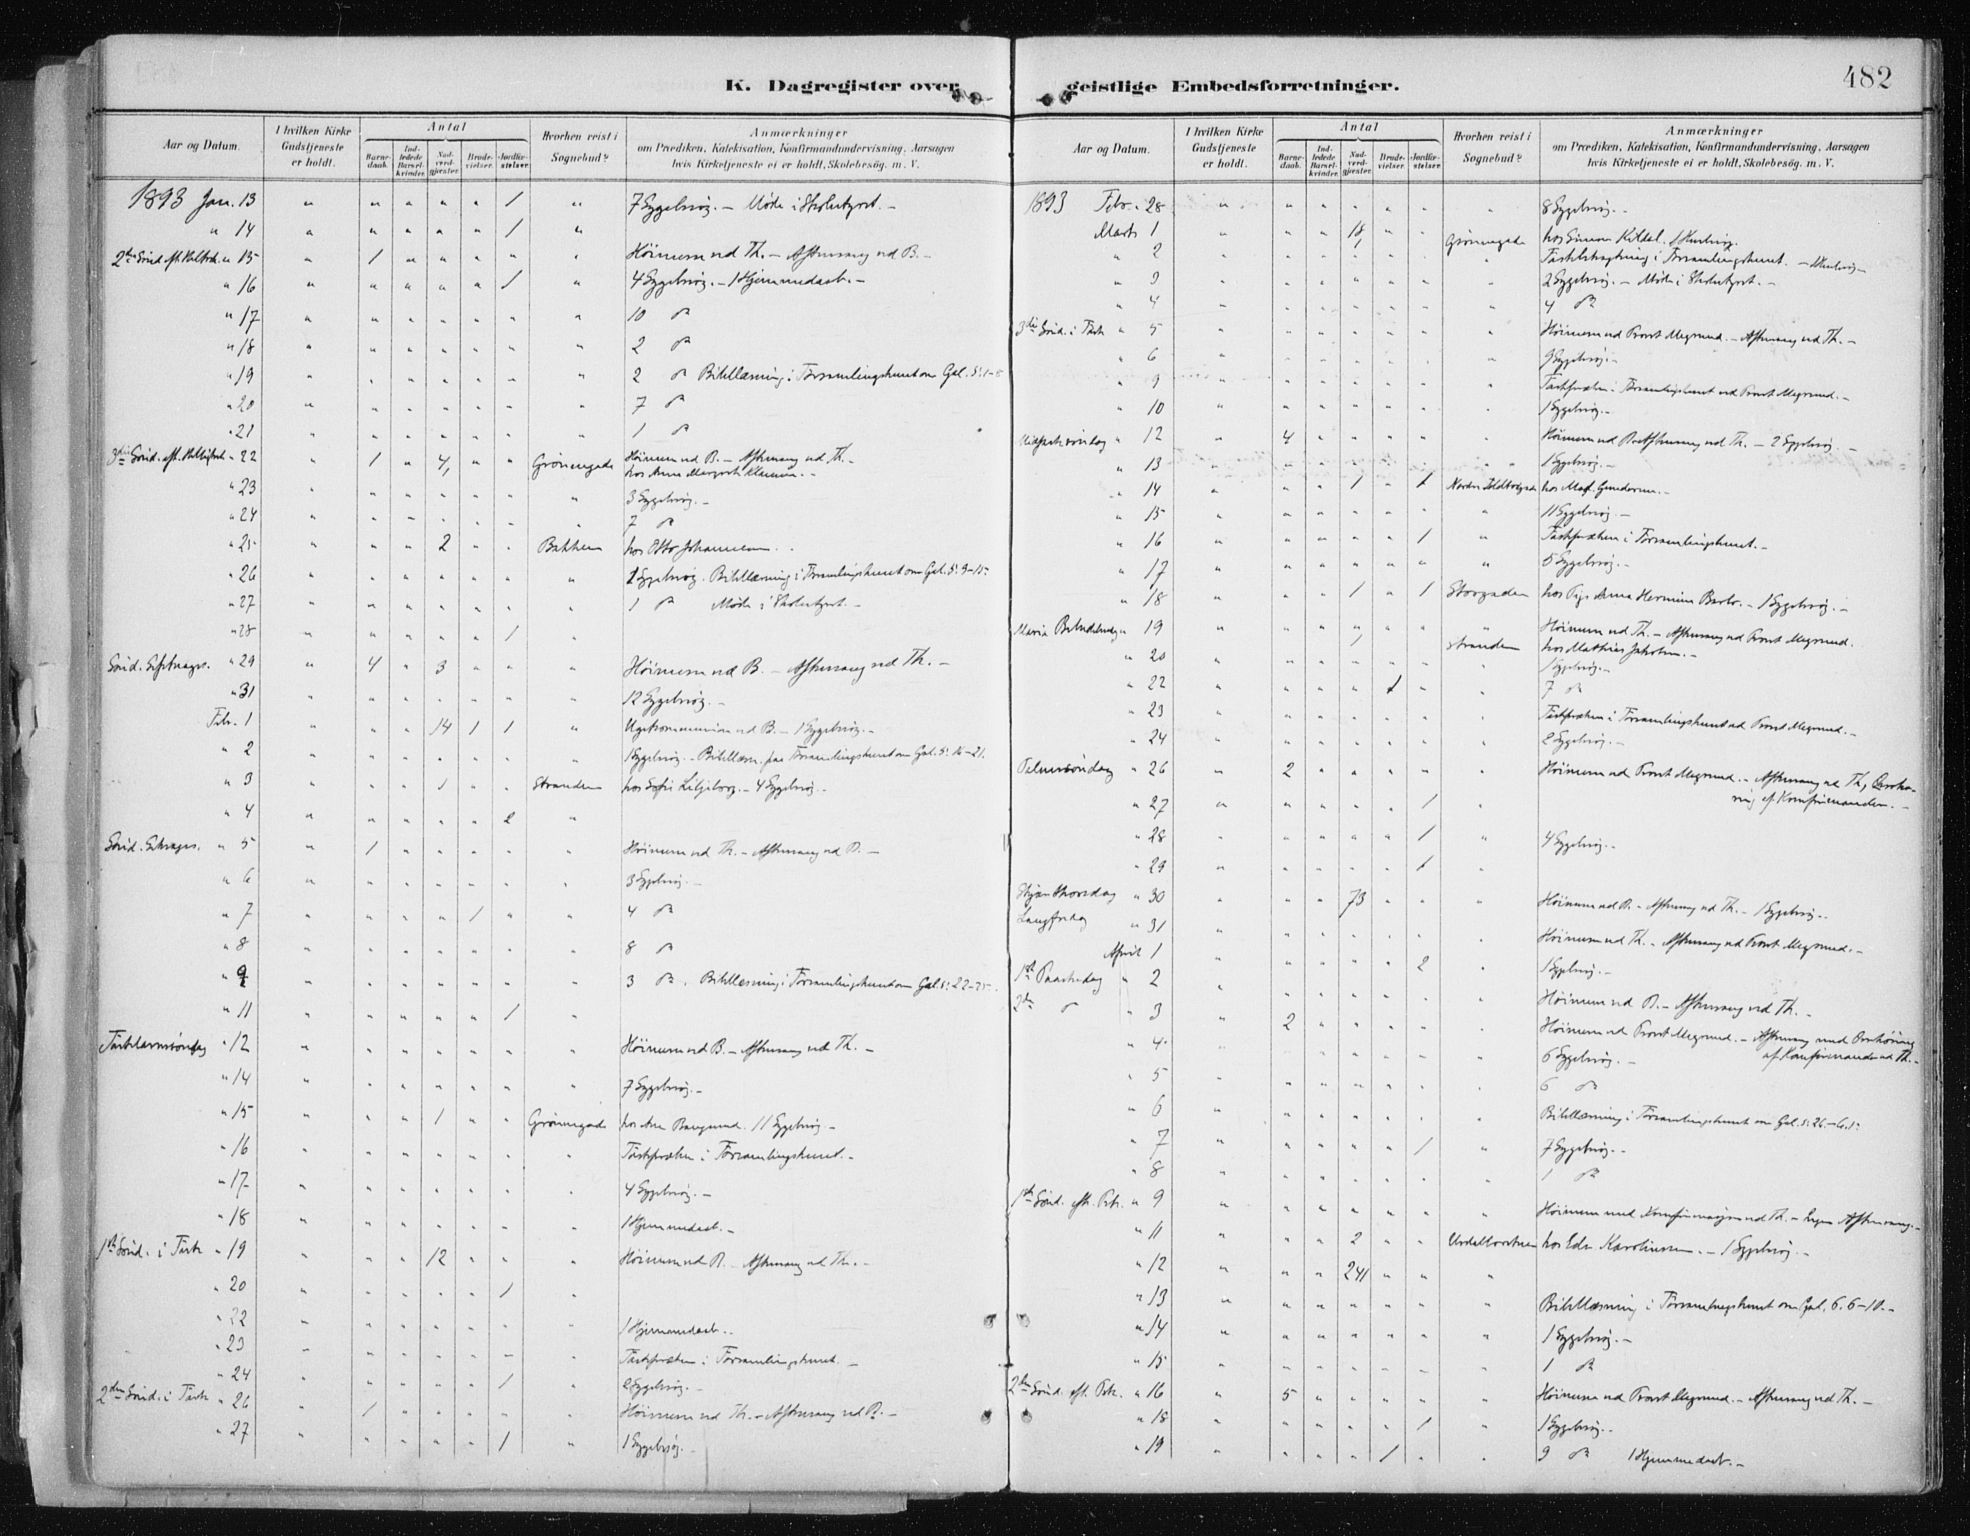 K. Dagregister over geistlige Embedsforretninger.
482
Aar og Datum.
I hvilken Kirke Gudstjeneste er holdt.
Antal
Barnedaab.
Indledede Barselkvinder.
Nadverdgjester.
Brudevielser.
Jordfæstelser.
Hvorhen reist i Sognebud?
Anmærkninger
om Prædiken, Katekisation, Konfirmandundervisning, Aarsagen
hvis Kirketjeneste ei er holdt, Skolebesøg. m. V.
1893 Jan. 13 " " " " " 1 " 7 Sygebesøg. – Møde i Skolestyret. –
" 14 " " " " " 1 "
" 15 " 1 " " " " " Høimesse ved Th. – Aftensang ved B. –
" 16 " " " " " 1 " 4 Sygebesøg. – 1 Hjemmedaab. –
" 17 " " " " " " " 10 do
" 18 " " " " " " " 2 do
" 19 " " " " " " " 2 do Bibellæsning i Forsamlingshuset om Gal. 5: 1–8
" 20 " " " " " " " 7 do
" 21 " " " " " " " 1 do
" 22 " 1 " 4 " " Grønnegade Høimesse ved B. – Aftensang ved Th. –
" 23 " " " " " " " 3 Sygebesøg. –
" 24 " " " " " " " 7 do
" 25 " " " 2 " " Bakken hos Otto Johannesen.
" 26 " " " " " " " Sygebesøg. Bibellæsning i Forsamlingshuset om Gal. 5: 9–15
" 27 " " " " " " " 1 do Møde i Skolestyret. –
" 28 " " " " " 1 "
Sønd. Septuages. " 29 " 4 " 3 " " " Høimesse ved B. – Aftensang ved Th. –
" 31 " " " " " " " 12 Sygebesøg. –
Febr. 1 " " " 14 1 1 " Ugekommunion ved B. – 1 Sygebesøg. –
" 2 " " " " " " " 1 Sygebesøg. – Bibellæsn. paa Forsamlingshuset om Gal. 5: 16–21.
" 3 " " " 1 " " Stranden hos Sofie Liljeborg. – 4 Sygebesøg –
" 4 " " " " " 2 "
Sønd. Seksages. " 5 " 1 " " " " " Høimesse ved Th. – Aftensang ved B. –
" 6 " " " " " " " 3 Sygebesøg. –
" 7 " " " " 1 " " 4 do
" 8 " " " " " " " 8 do
" 9 " " " " " " " 3 do. Bibellæsning i Forsamlingshuset om Gal. 5: 22–25.
" 11 " " " " " 1 "
Fastelavnssøndag " 12 " " " " " " " Høimesse ved B. – Aftensang ved Th. –
" 14 " " " " " " " 7 Sygebesøg. –
" 15 " " " 1 " " Grønnegade 11 Sygebesøg –
" 16 " " " " " " " Fastepræken i Forsamlingshuset. –
" 17 " " " " " " " 4 Sygebesøg. –
" 18 " " " " " " " 1 Hjemmedaab. –
1ste Sønd. i Faste " 19 " " " 12 " " " Høimesse ved B. – Aftensang ved Th. –
" 20 " " " " " 1 "
" 22 " " " " " " " 1 Hjemmedaab. –
" 23 " " " " " " " Fastepræken i Forsamlingshuset. –
" 24 " " " " " 1 " 2 Sygebesøg. –
2den Sønd. i Faste " 26 " 1 " " " " " Høimesse ved Th. – Aftensang ved B. –
" 27 " " " " " 1 " 1 Sygebesøg. –
Aar og Datum.
I hvilken Kirke Gudstjeneste er holdt.
Antal
Barnedaab.
Indledede Barselkvinder.
Nadverdgjester.
Brudevielser.
Jordfæstelser.
Hvorhen reist i Sognebud?
Anmærkninger
om Prædiken, Katekisation, Konfirmandundervisning, Aarsagen
hvis Kirketjeneste ei er holdt, Skolebesøg. m. V.
1893 Febr. 28 " " " " " " " 8 Sygebesøg. –
Marts 1 " " " 18 " " Grønnegade hos Simon Kildal.
" 2 Fastebetragtning i Forsamlingshuset.
" 3 " " " " " " " 2 Sygebesøg. – Møde i Skolestyret. –
" 4 " " " " " " " 4 do
3die Sønd. i Faste " 5 " " " " " " " Høimesse ved Provst Mezsund. – Aftensang ved Th. –
" 6 " " " " " " " 9 Sygebesøg. –
" 9 " " " " " " " Fastepræken i Forsamlingshuset ved Provst Mezsund. –
" 10 " " " " " " " 1 Sygebesøg. –
Midfastesøndag " 12 " 4 " " " " " Høimesse ved B. Aftensang ved Th. – 2 Sygebesøg –
" 13 " " " " " " " 1 Sygebesøg. –
" 14 " " " 1 " 1 hos Mad. Gundersen. –
" 15 " " " " " " " 11 Sygebesøg. –
" 16 " " " " " 1 " Fastepræken i Forsamlingshuset. –
" 17 " " " " " " " 5 Sygebesøg. –
" 18 " " " 1 " 1 Storgaden hos Pige Anna – 1 Sygebesøg. –
Maria Bebudelsesdag " 19 " " " " " " " Høimesse ved Th. – Aftensang ved Provst Mezsund.
Stranden hos Mathias Jakobsen. –
" 20 1 Sygebesøg. –
" 22 " " " " 1 " " 7 do
" 23 " " " " " " " Fastepræken i Forsamlingshuset ved Provst Mezsund. –
" 24 " " " " " " " 2 Sygebesøg. –
Palmesøndag " 26 " 2 " " " " " Høimesse ved Provst Mezsund. – Aftensang ved Th, Overhøring af Konfirmander. –
" 27 " " " " " 1 "
" 28 " " " " " 1 " 4 Sygebesøg. –
" 29 " " " " " 1 "
Skjærthorsdag " 30 " " " 73 " " " Høimesse ved B. – Aftensang ved Th. – 1 Sygebesøg. –
Langfredag " 31 " " " " " " " Høimesse ved Th. – Aftensang ved Provst Mezsund. –
April 1 " " " " " 2 " 1 Sygebesøg. –
1ste Paaskedag " 2 " " " " " " " Høimesse ved B. – Aftensang ved Th. –
2den do " 3 " 2 " " " " " Høimesse ved Provst Mezsund. – Aftensang med Overhøring af Konfirmander ved Th. –
" 4 " " " " " " " 6 Sygebesøg. –
" 5 " " " " " " " 6 do
" 6 " " " " " " " Bibellæsning i Forsamlingshuset om Gal. 5: 26. – 6.
" 7 " " " " " 1 " 7 Sygebesøg. –
" 8 " " " " " " " 1 do
1ste Sønd. eft. Psk. " 9 " " " " " " " Høimesse med Konfirmasjon ved Th. – Ingen Aftensang. –
" 11 " " " 2 " " hos Edv. Karolinssen. – 1 Sygebesøg. –
" 12 " " " 241 " " "
" 13 " " " " " " " Bibellæsning i Forsamlingshuset om Gal. 6. 6–10. –
" 14 " " " " " " " 1 Sygebesøg. –
" 15 " " " " " " " 1 do
2den Sønd. eft. Psk. " 16 " 5 " " " " " Høimesse ved Provst Mezsund. – Aftensang ved Th. –
" 18 " " " " " 1 " 1 Sygebesøg. –
" 19 " " " " 1 " " 9 do 1 Hjemmedaab. –